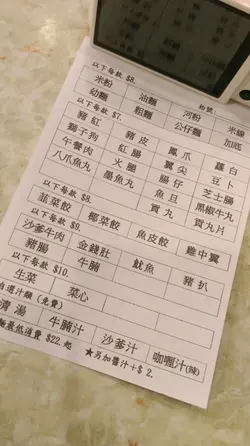 以下每款 $8. 枱號:
米粉 油麵 河粉 米線
幼麵 粗麵 公仔麵 加底
以下每款 $7.
豬紅 豬皮 鳳爪 蘿白
獅子狗 紅腸 墨尖 豆卜
午餐肉 火腿 腸仔 芝士腸
八爪魚丸 墨魚丸 魚旦 黑椒牛丸
貢丸 貢丸片
以下每款 $8.
韮菜餃 椰菜餃 魚皮餃 雞中翼
以下每款 $9.
沙爹牛肉 金錢肚
豬腸 牛腩 魷魚 豬扒
以下每款 $10.
生菜 菜心
自選汁類 (免費)
清湯 牛腩汁 沙爹汁 咖喱汁(辣)
麵最低消費 $22. 起 ★另加醬汁+$ 2.